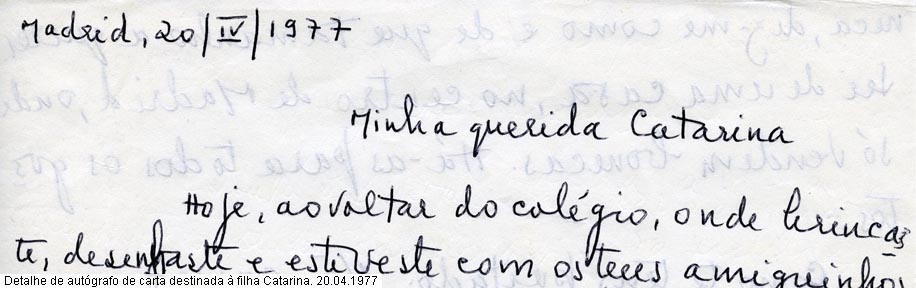 Madrid, 20/IV/1977
Minha querida Catarina
Hoje, ao voltar do colégio, onde brincas
te, desenhaste e estiveste com os teus amiguinhos
Detalhe de autógrafo de carta destinada à filha Catarina. 20.04.1977